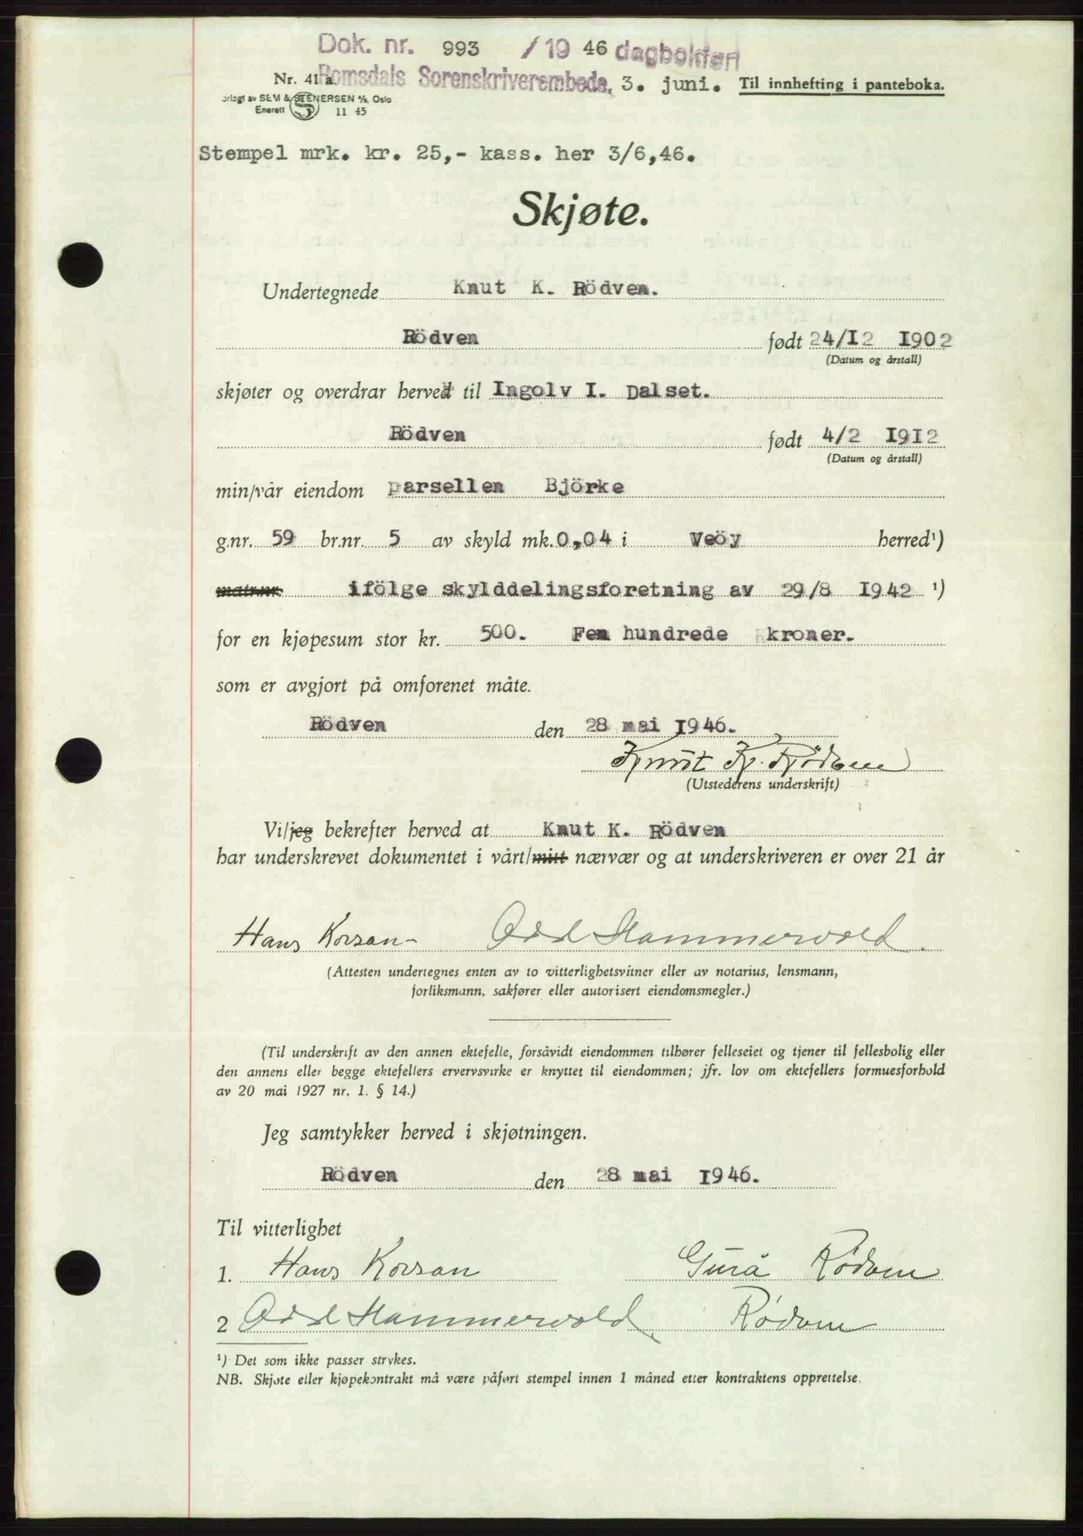 Dok. nr. 993 /19 46 dagbokført
Nr. 41 a. Romsdals Sorenskriverembede, 3. juni. Til innhefting i panteboka.
SEM & STENERSEN A/S, Oslo
Enerett 11 45
Stempel mrk. kr. 25,- kass. her 3/6,46.
Skjøte.
Undertegnede Knut K. Rödven.
Rödven født 24/I2 I902
(Datum og årstall)
skjøter og overdrar herved til Ingolv I. Dalset.
Rödven født 4/2 I9I2
(Datum og årstall)
min/vår eiendom parsellen Björke
g.nr. 59 br.nr. 5 av skyld mk. 0,04 i Veöy herred¹)
matr.nr. ifölge skylddelingsforetning av 29/8 I942 ¹)
for en kjøpesum stor kr. 500. Fem hundrede kroner.
som er avgjort på omforenet måte.
Rödven den 28 mai I946.
Knut K. Rødven
(Utstederens underskrift)
Vi/jeg bekrefter herved at Knut K. Rödven
har underskrevet dokumentet i vårt/mitt nærvær og at underskriveren er over 21 år
Hans Korsan- Odd Hammervold.
(Attesten undertegnes enten av to vitterlighetsvitner eller av notarius, lensmann,
forliksmann, sakfører eller autorisert eiendomsmegler.)
(Til underskrift av den annen ektefelle, forsåvidt eiendommen tilhører felleseiet og tjener til fellesbolig eller
den annens eller begge ektefellers ervervsvirke er knyttet til eiendommen; jfr. lov om ektefellers formuesforhold
av 20 mai 1927 nr. 1. § 14.)
Jeg samtykker herved i skjøtningen.
Rödven den 28 mai I946.
Til vitterlighet
1. Hans Korsan Gurå Rødven
2 Odd Hammervold Rødven
¹) Det som ikke passer strykes.
NB. Skjøte eller kjøpekontrakt må være påført stempel innen 1 måned etter kontraktens opprettelse.